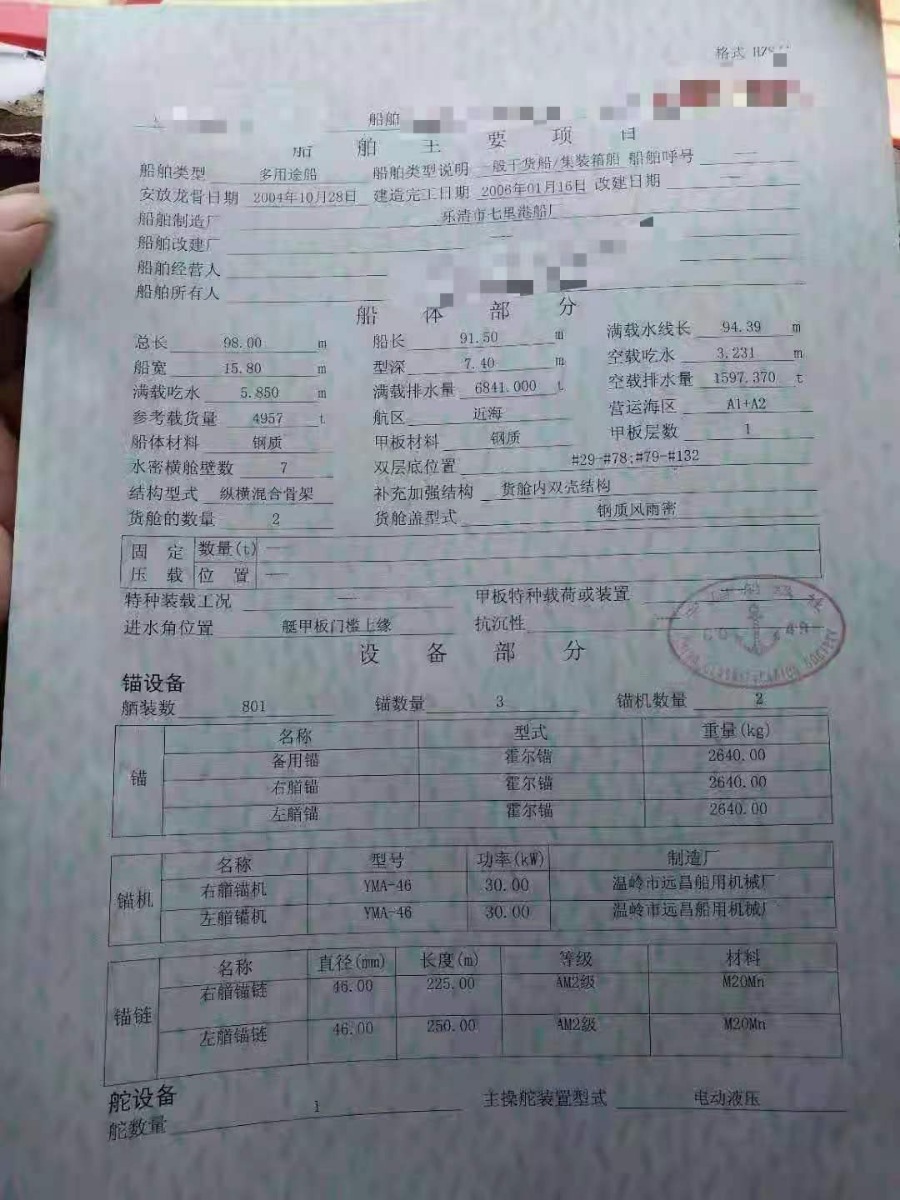 格式 HZ
船舶
船舶主要项目
船舶类型 多用途船 船舶类型说明 一般干货船/集装箱船 船舶呼号 —
安放龙骨日期 2004年10月28日 建造完工日期 2006年01月16日 改建日期 —
船舶制造厂 乐清市七里港船厂
船舶改建厂 —
船舶经营人
船舶所有人
船体部分
总长 98.00 m 船长 91.50 m 满载水线长 94.39 m
船宽 15.80 m 型深 7.40 m 空载吃水 3.231 m
满载吃水 5.850 m 满载排水量 6841.000 t 空载排水量 1597.370 t
参考载货量 4957 t 航区 近海 营运海区 A1+A2
船体材料 钢质 甲板材料 钢质 甲板层数 1
水密横舱壁数 7 双层底位置 #29-#78;#79-#132
结构型式 纵横混合骨架 补充加强结构 货舱内双壳结构
货舱的数量 2 货舱盖型式 钢质风雨密
固定 数量(t) —
压载 位置 —
特种装载工况 — 甲板特种载荷或装置
进水角位置 艇甲板门槛上缘 抗沉性 —
CHINA CLASSIFICATION SOCIETY
设备部分
锚设备
舾装数 801 锚数量 3 锚机数量 2
锚
名称 型式 重量(kg)
备用锚 霍尔锚 2640.00
右艏锚 霍尔锚 2640.00
左艏锚 霍尔锚 2640.00
锚机
名称 型号 功率(kW) 制造厂
右艏锚机 YMA-46 30.00 温岭市远昌船用机械厂
左艏锚机 YMA-46 30.00 温岭市远昌船用机械厂
锚链
名称 直径(mm) 长度(m) 等级 材料
右艏锚链 46.00 225.00 AM2级 M20Mn
左艏锚链 46.00 250.00 AM2级 M20Mn
舵设备
舵数量 1 主操舵装置型式 电动液压